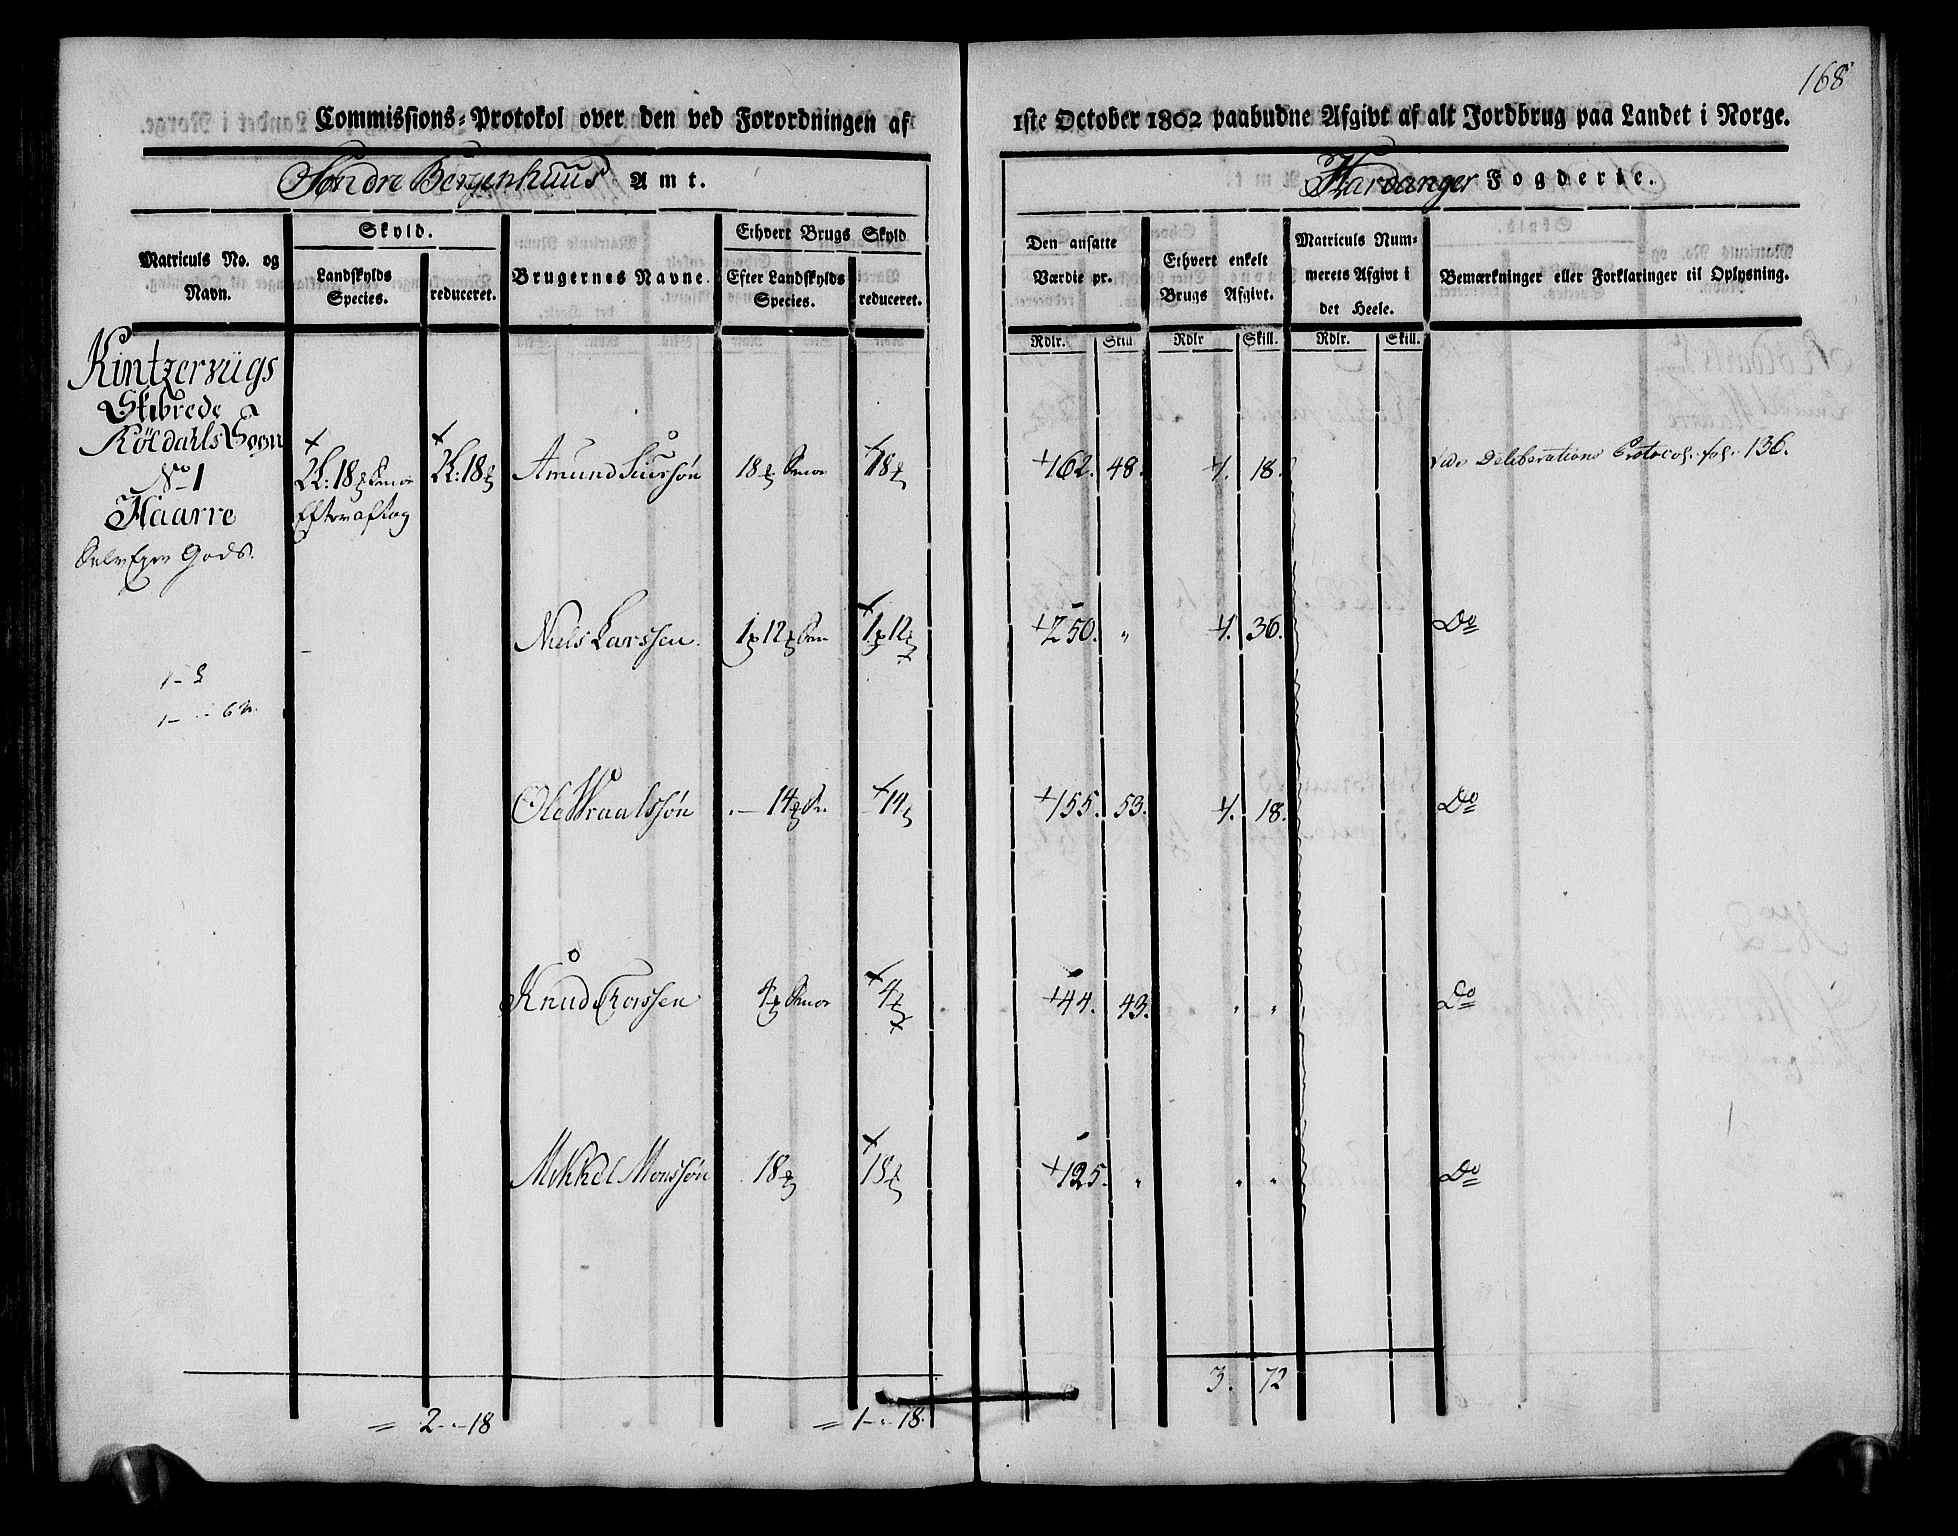 168
Commissions-Protokol over den ved Forordningen af 1ste October 1802 paabudne Afgivt af alt Jordbrug paa Landet i Norge.
Søndre Bergenhuus Amt.
Hardanger Fogderie.
Matriculs No. og Navn.
Skyld.
Landskylds Species.
reduceret.
Brugernes Navne.
Ethvert Brugs Skyld
Efter Landskylds Species.
reduceret.
Den ansatte Værdie pr.
Ethvert enkelt Brugs Afgivt.
Matriculs Nummerets Afgivt i det Heele.
Bemærkninger eller Forklaringer til Oplysning.
Rdlr. Skill. Rdlr Skill. Rdlr. Skill.
Kintzerviigs
Skibrede
Röldahls Sogn
No 1
Haarre
Selv Eyer Gods.
18 Smör
Efter aftag
18
Amund Siurssøn 18 Smör 18 162. 48. 1. 18. Vide Deliberations Protocol. fol. 136.
Niels Larssen. 1 12 1 12 250. " 1. 36. Do
1 -
1 - 6
Ole Wraalssøn 14 14 155. 53. 1. 18. Do
Knud Torssen 4 Smör 4 44. 43. " " Do
Mikkel Monssøn 18 18 125. " " " Do
3. 72
= 2 - 18 = 1 - 18.